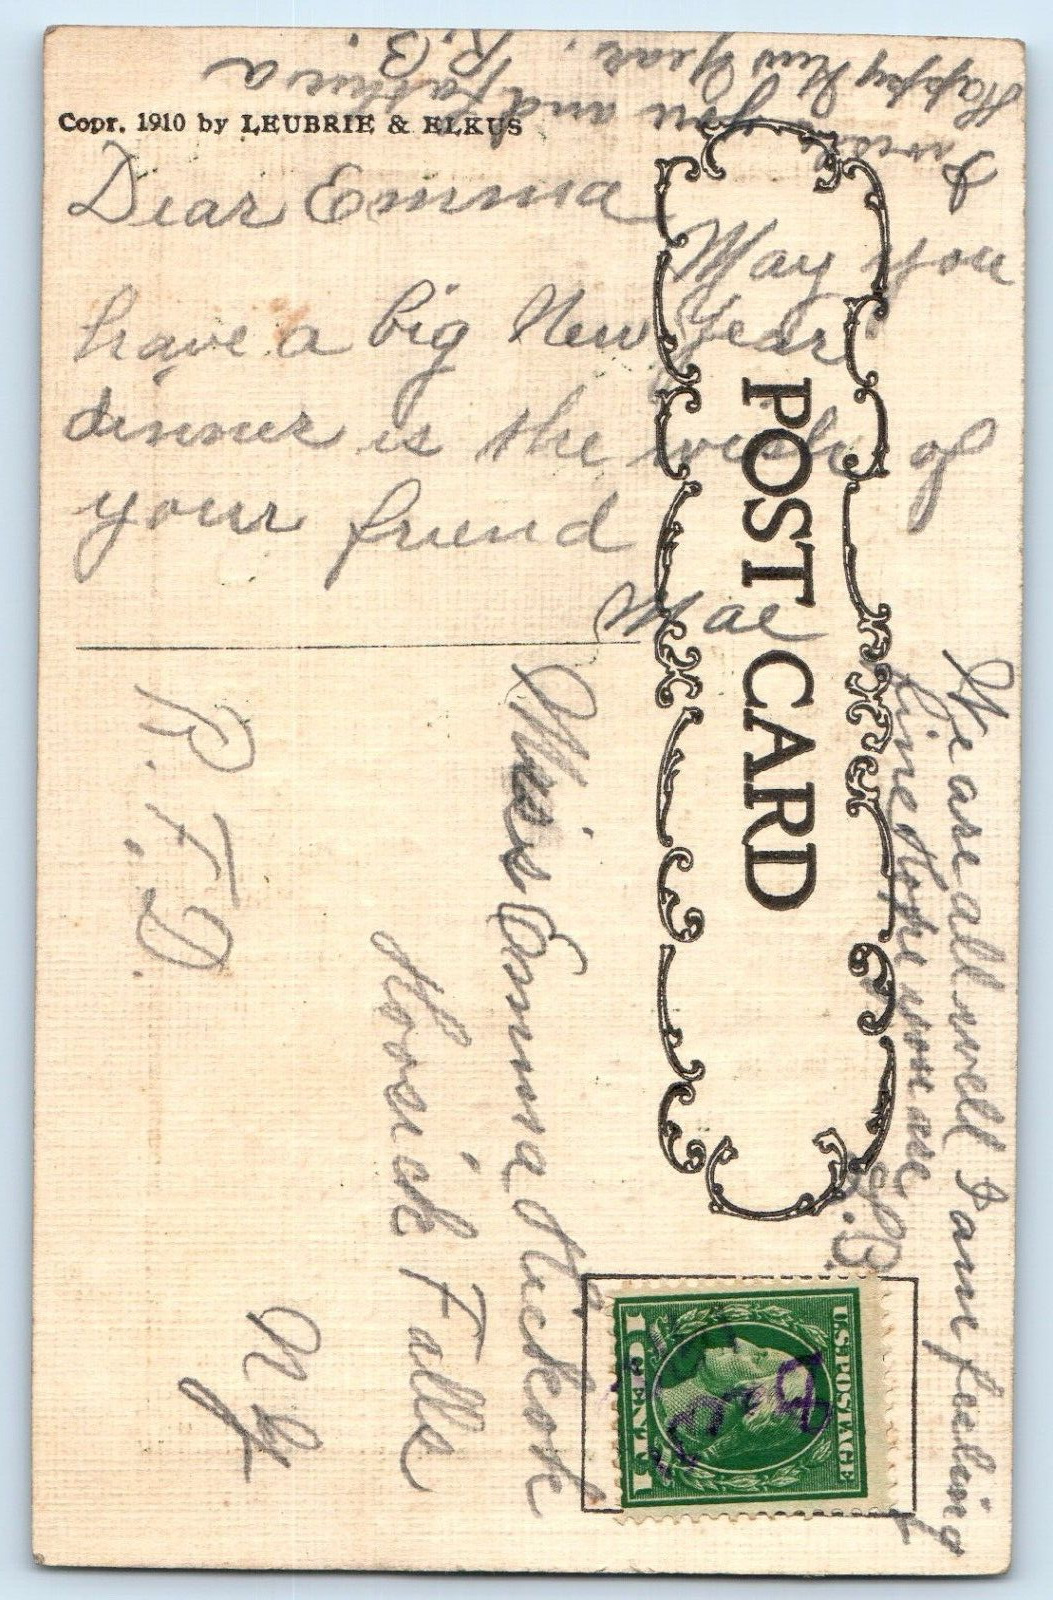 Copr. 1910 by LEUBRIE & ELKUS
Dear Emma
May you
have a big New Year
dinner is the wish of
your friend
Mae
I wish you and Father a
Happy New Year.
R.B.
POST CARD
We are all well I am feeling
fine Hope you are
R.B.
Miss Emma
Hoosick Falls
R.F.D.
N.Y.
U.S. POSTAGE
1 CENT 1